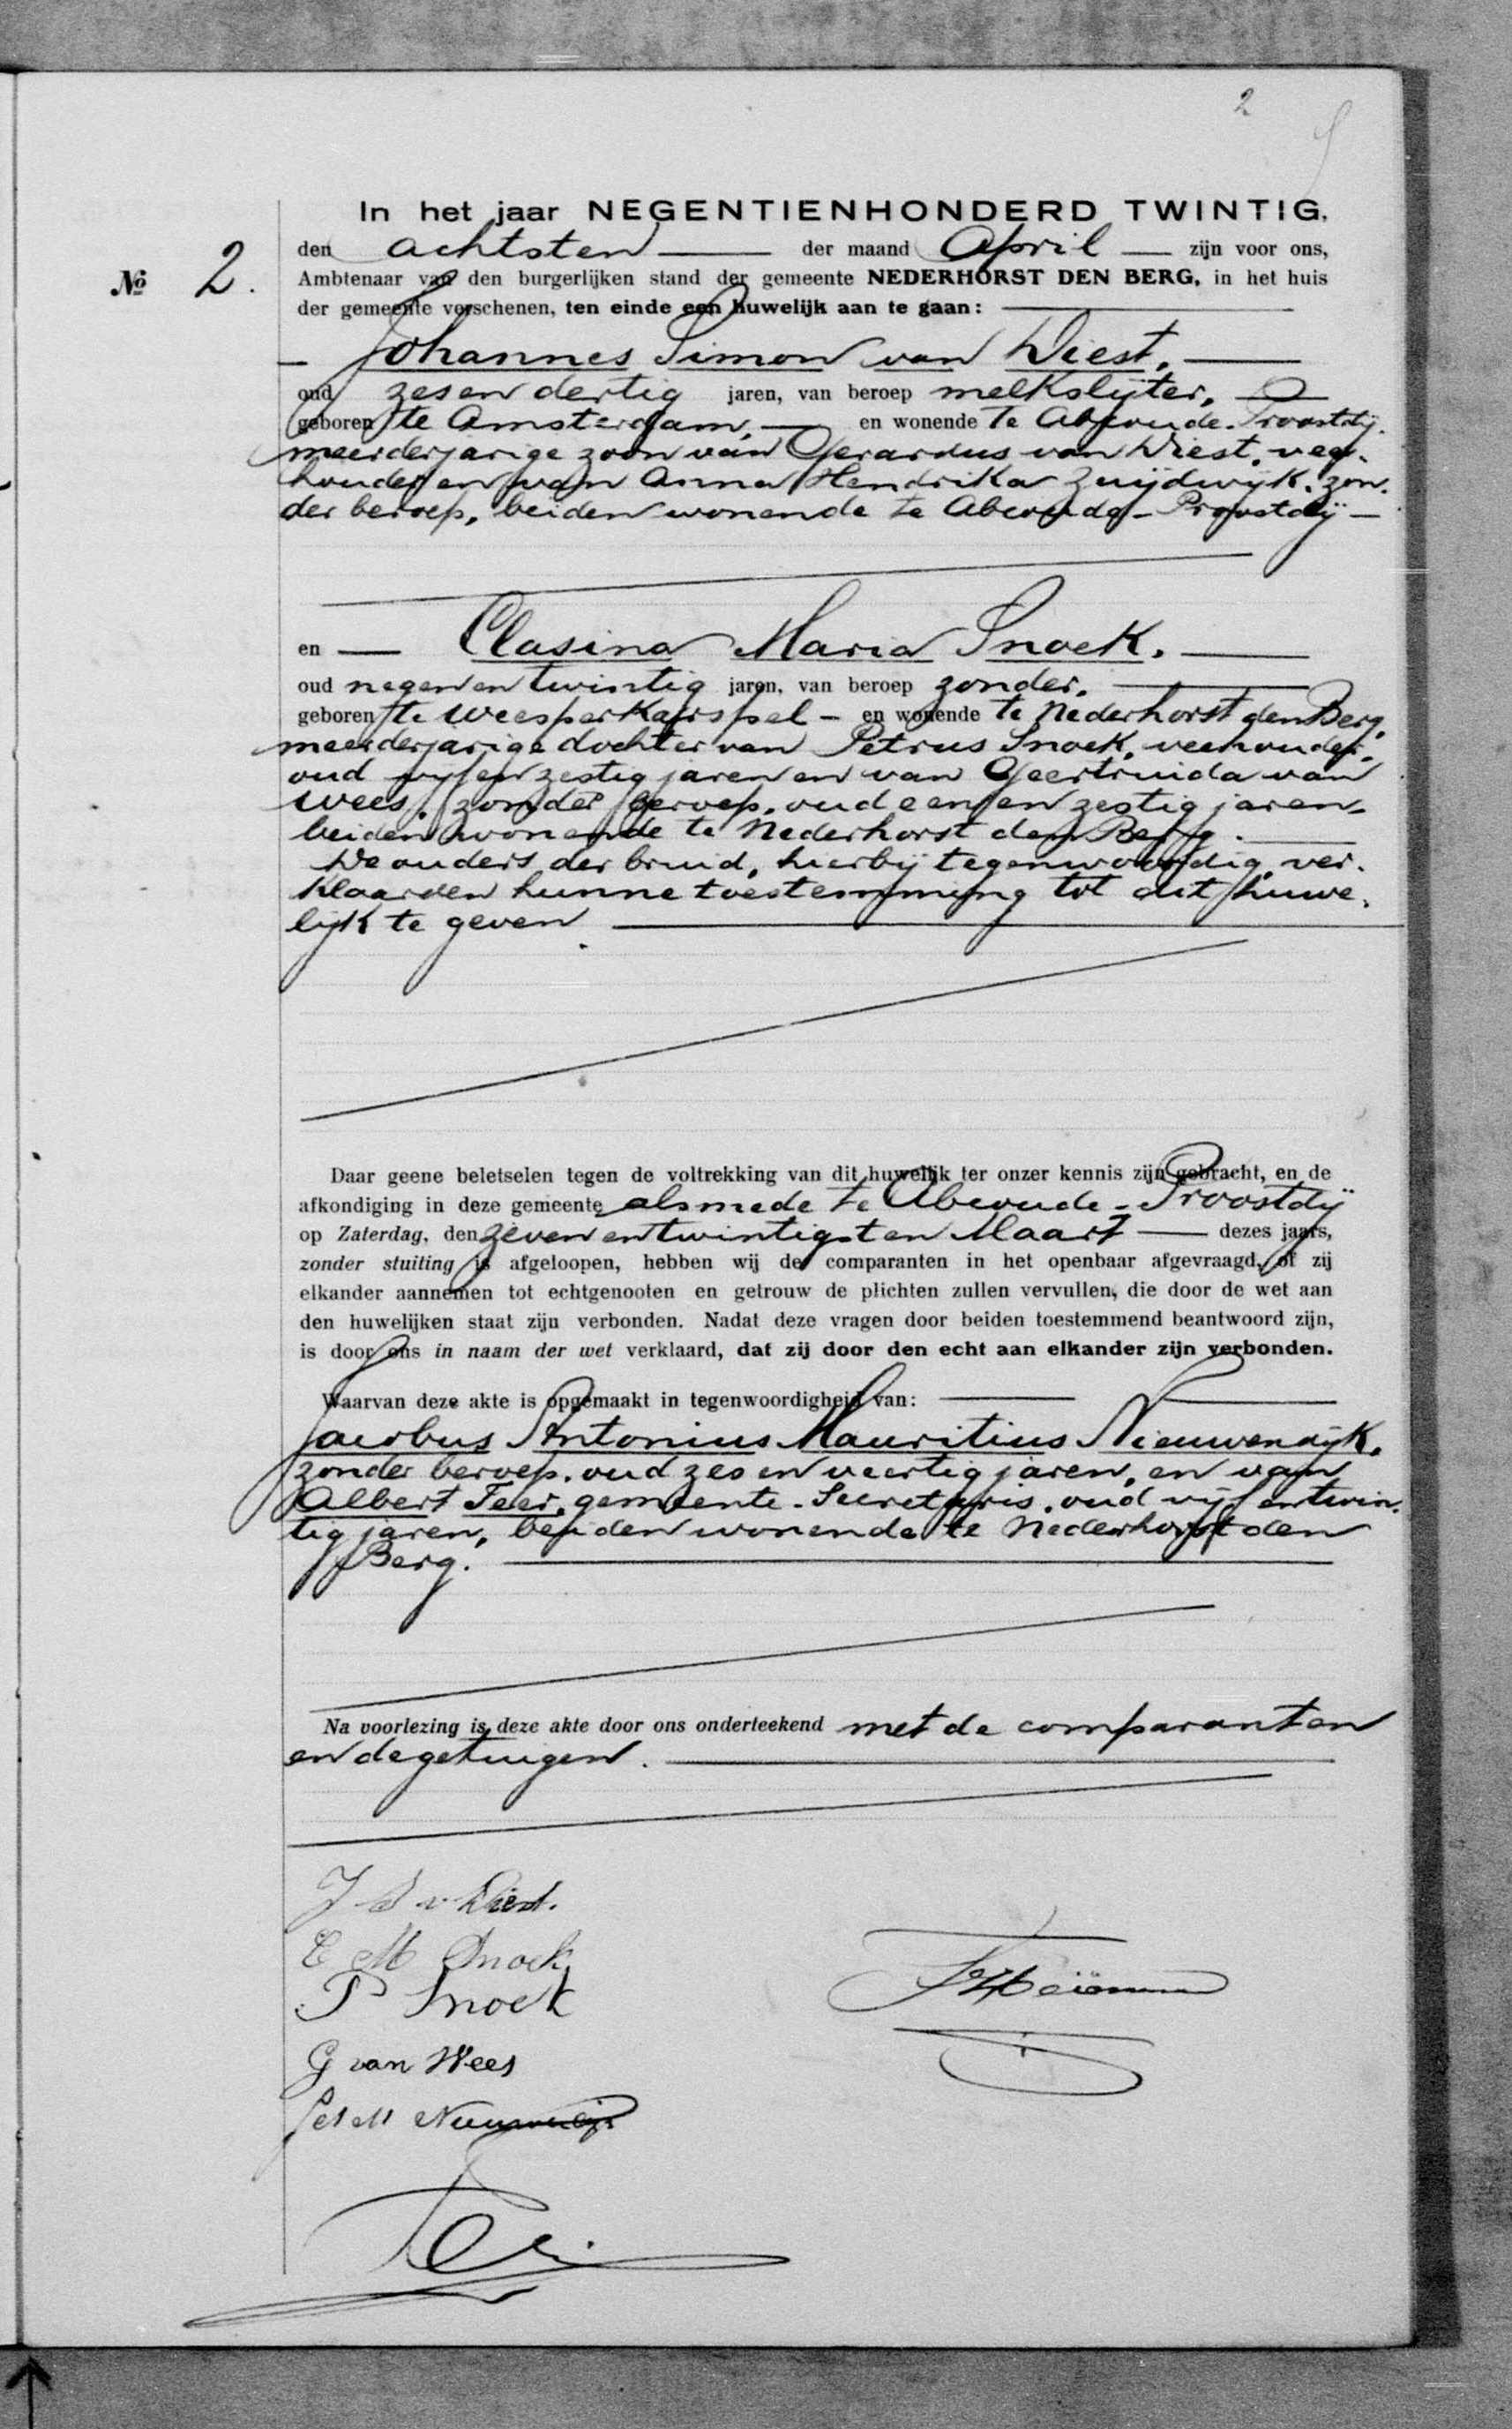 2
In het jaar NEGENTIENHONDERD TWINTIG,
No 2.
den achtsten der maand April zijn voor ons,
Ambtenaar van den burgerlijken stand der gemeente NEDERHORST DEN BERG, in het huis
der gemeente verschenen, ten einde een huwelijk aan te gaan:
Johannes Simon van Diest,
oud zesendertig jaren, van beroep melkslijter,
geboren te Amsterdam, en wonende te Abcoude-Proostdij
meerderjarige zoon van Gerardus van Diest, vee-
houder en van Anna Hendrika Zuijdwijk, zon-
der beroep, beiden wonende te Abcoude-Proostdij
en Clasina Maria Snoek,
oud negen en twintig jaren, van beroep zonder,
geboren te Weesperkarspel en wonende te Nederhorst den Berg,
meerderjarige dochter van Petrus Snoek, veehouder,
oud vijf en zestig jaren en van Geertruida van
Wees, zonder beroep, oud een en zestig jaren,
beiden wonende te Nederhorst den Berg.
De ouders der bruid, hierbij tegenwoordig, ver-
klaarden hunne toestemming tot dit huwe-
lijk te geven.
Daar geene beletselen tegen de voltrekking van dit huwelijk ter onzer kennis zijn gebracht, en de
afkondiging in deze gemeente alsmede te Abcoude-Proostdij
op Zaterdag, den zeven en twintigsten Maart dezes jaars,
zonder stuiting is afgeloopen, hebben wij de comparanten in het openbaar afgevraagd, of zij
elkander aannemen tot echtgenooten en getrouw de plichten zullen vervullen, die door de wet aan
den huwelijken staat zijn verbonden. Nadat deze vragen door beiden toestemmend beantwoord zijn,
is door ons in naam der wet verklaard, dat zij door den echt aan elkander zijn verbonden.
Waarvan deze akte is opgemaakt in tegenwoordigheid van:
Jacobus Antonius Mauritius Nieuwendijk,
zonder beroep, oud zes en veertig jaren, en van
Albert Feer, gemeente-Secretaris, oud vijf en twin-
tig jaren, beiden wonende te Nederhorst den
Berg.
Na voorlezing is deze akte door ons onderteekend met de comparanten
en de getuigen.
J S v Diest.
C M Snoek
P Snoek
G van Wees